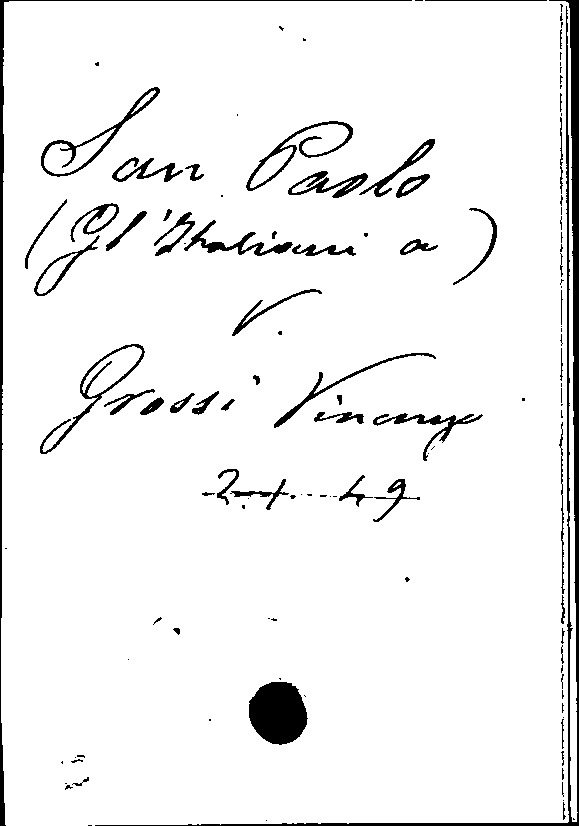 San Paolo
(Gl'Italiani a)
V.
Grossi Vincenzo